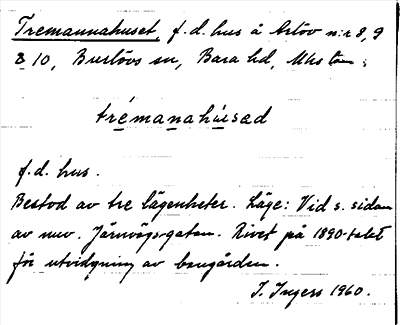 Tremannahuset, f.d. hus å Arlöv n:r 8, 9
& 10, Burlövs sn, Bara hd, Mhs län.
trémanahúsəd
f.d. hus.
Bestod av tre lägenheter. Läge: Vid s. sidan
av nuv. Järnvägsgatan. Rivet på 1890-talet
för utvidgning av bangården.
I. Ingers 1960.